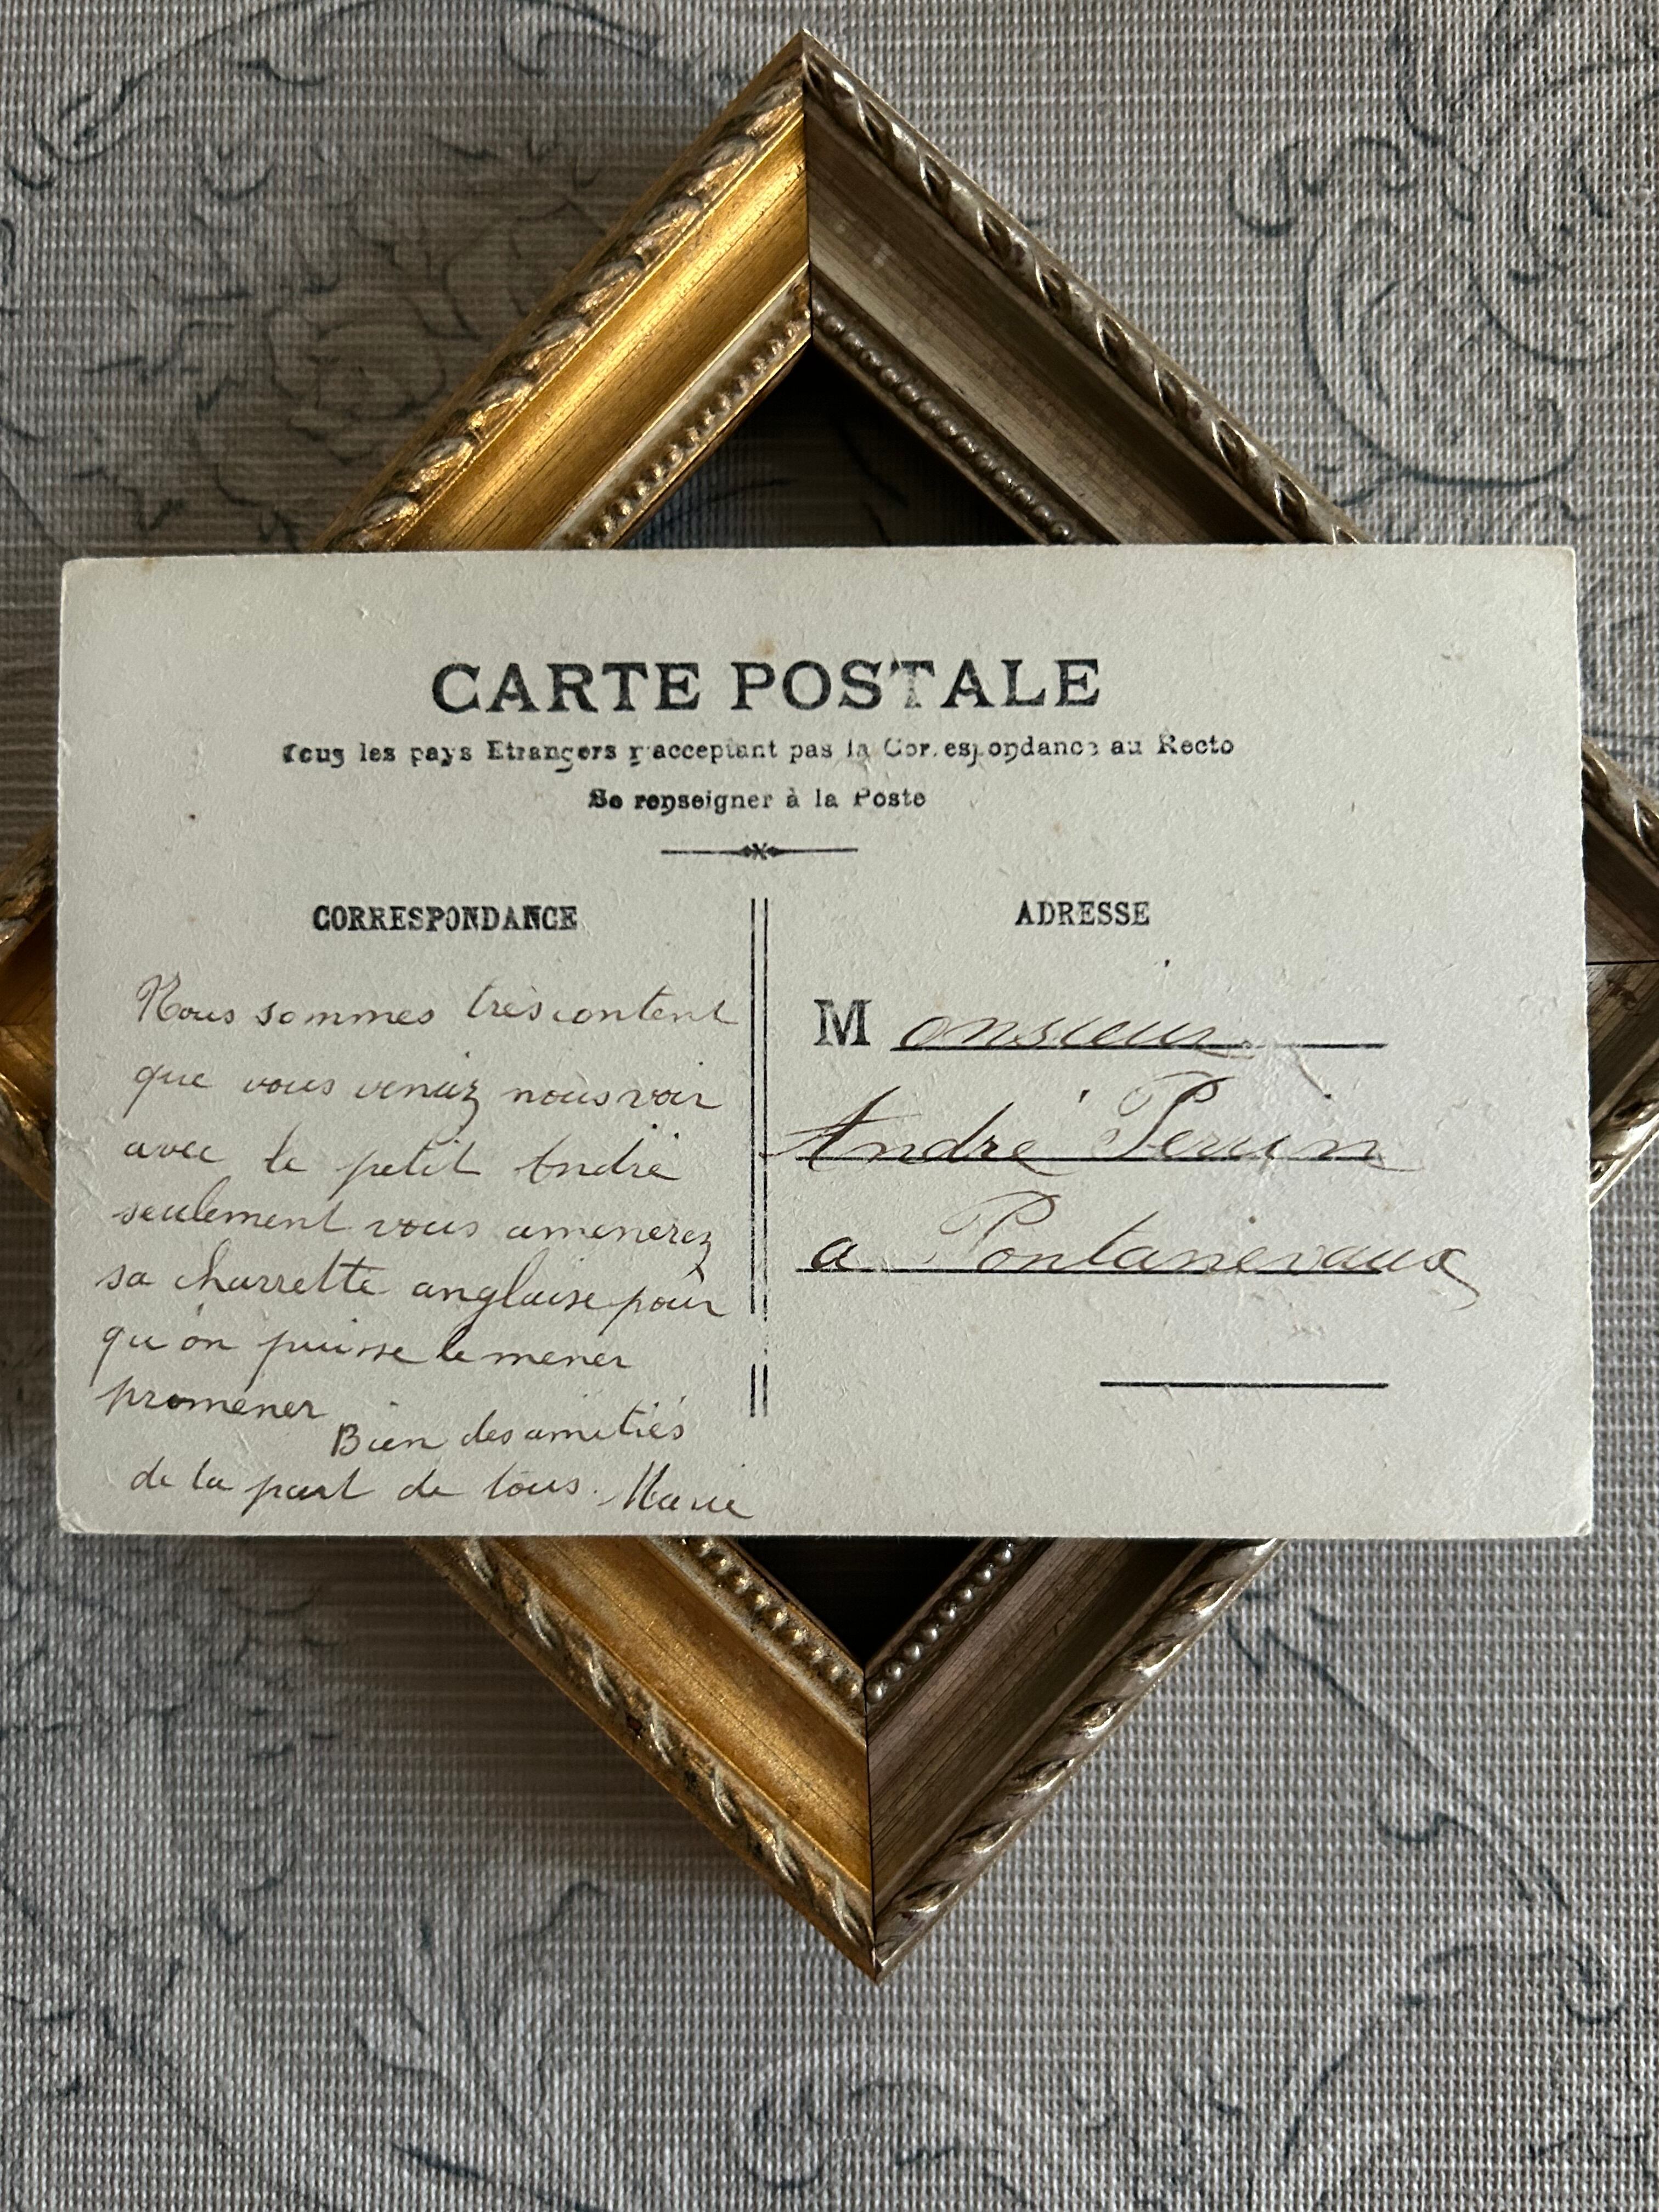 CARTE POSTALE
Tous les pays Etrangers n'acceptant pas la Correspondance au Recto
Se renseigner à la Poste
CORRESPONDANCE
Nous sommes très content
que vous veniez nous voir
avec le petit André
seulement vous amenerez
sa charrette anglaise pour
qu'on puisse le mener
promener
Bien des amitiés
de la part de tous. Marie
ADRESSE
Monsieur
André Perrin
a Pontanevaux